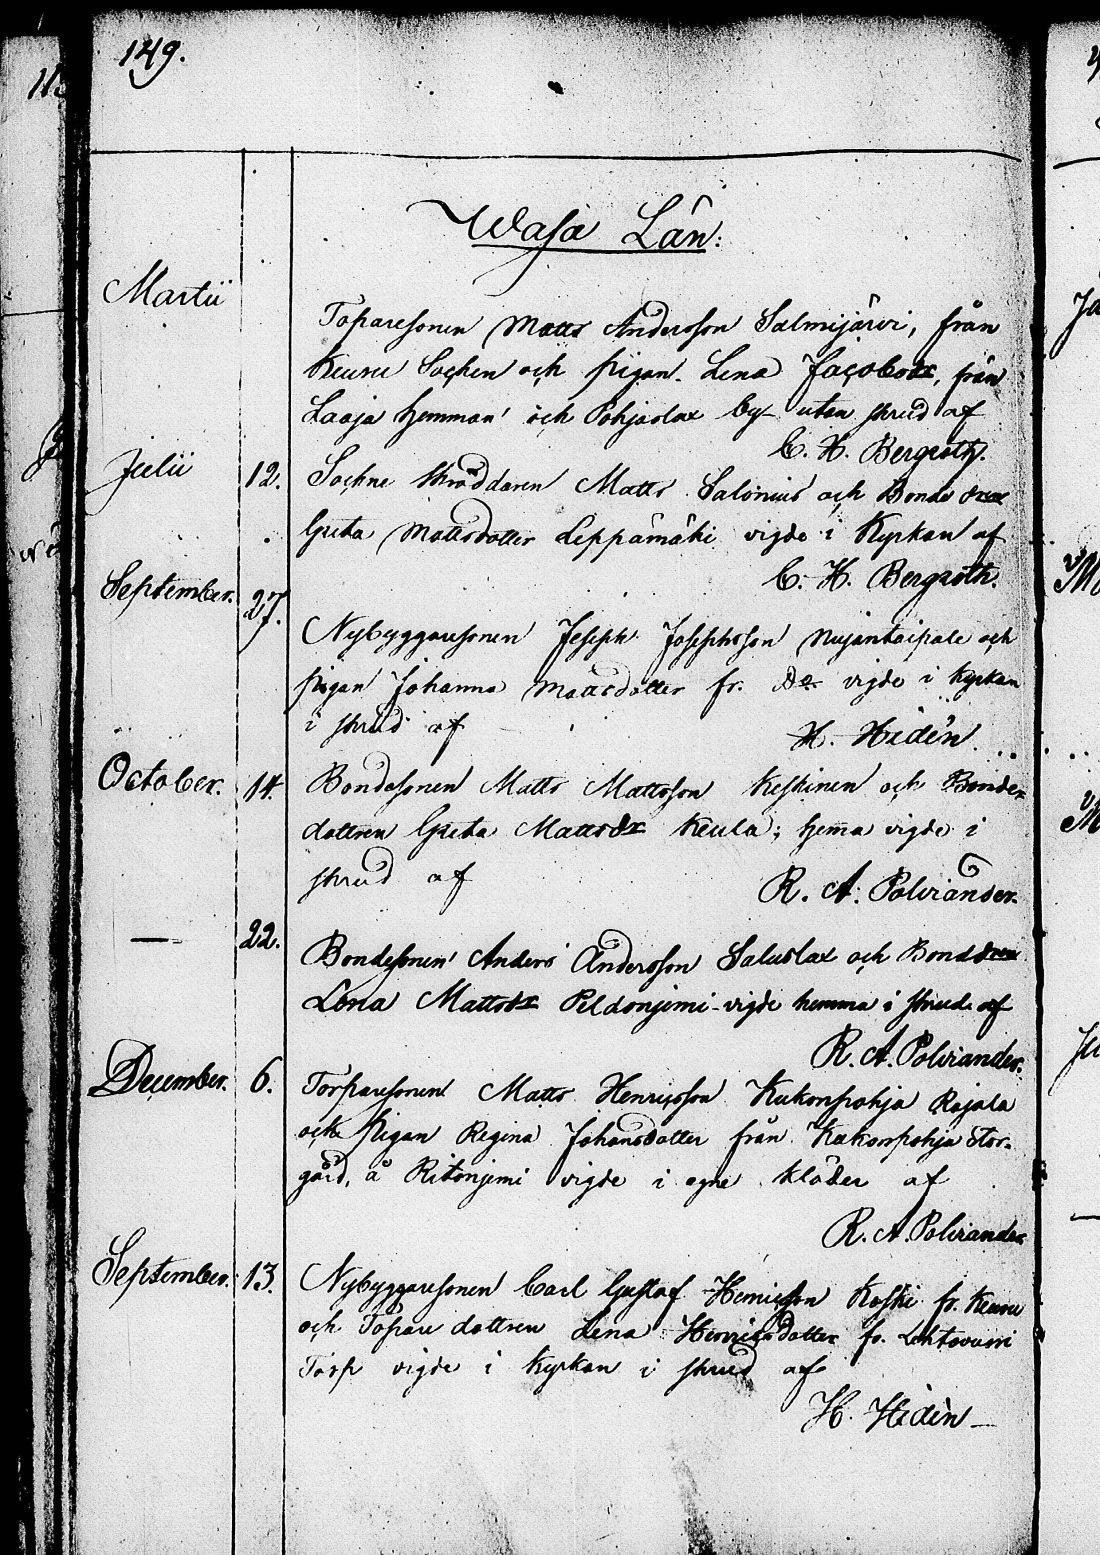 149.
Wasa Län:
Martii
Toparesonen Matts Andersson Salmijärvi, från
Keuru Sochen och pigan Lena Jacobsdr, från
Laaja hemman och Pohjaslax by utan skrud af
C. H. Bergroth.
Julii 12. Sochne skräddaren Matts Salonius och Bonde dren
Greta Mattsdotter Leppämäki vigde i Kyrkan af
C. H. Bergroth.
September. 27.
Nybyggaresonen Joseph Josephsson Nujantaipale och
pigan Johanna Mattsdotter fr. Do vigde i Kyrkan
i skrud af
H. Hidén
October. 14. Bondesonen Matts Mattsson Keskinen och Bonde-
dottren Greta Mattsdr Keula; hema vigde i
skrud af
R. A. Polviander.
— 22.
Bondesonen Anders Andersson Saluslax och Bonddren
Lena Mattsdr Peldonjemi vigde hemma i skrud af
R. A. Polviander.
December. 6. Torparesonen Matts Henricsson Kukonpohja Rajala
och Pigan Regina Johansdotter från Kukonpohja Stor-
gård, å Ritonjemi vigde i egne kläder af
R. A. Polviander
September. 13. Nybyggaresonen Carl Gustaf Henricsson Koski fr. Keuru
och Topare dottren Lena Henricsdotter fr. Lehtovuori
Torp vigde i Kyrkan i skrud af
H. Hidén